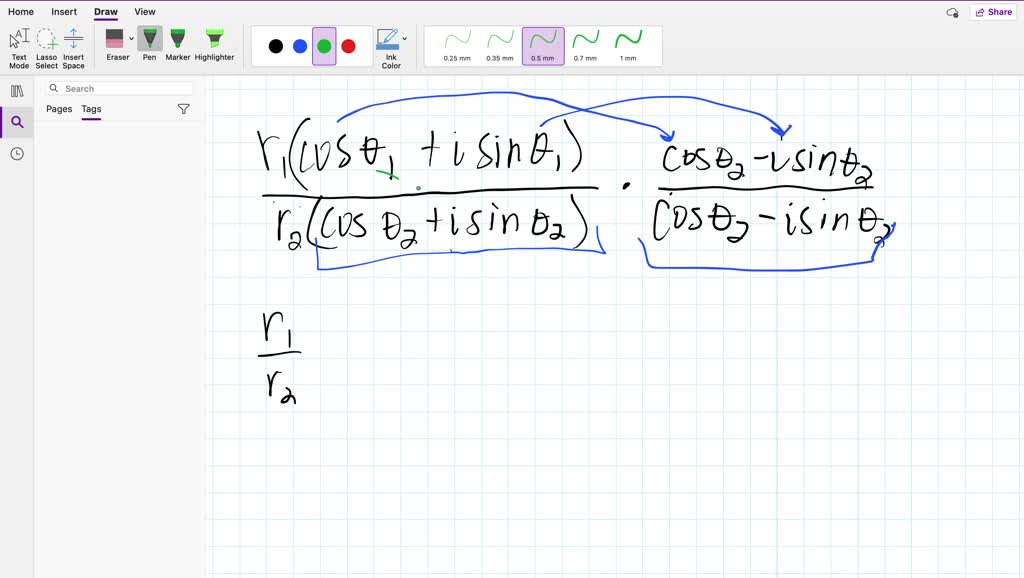 Home Insert Draw View Share
Text Mode Lasso Select Insert Space Eraser Pen Marker Highlighter Ink Color 0.25 mm 0.35 mm 0.5 mm 0.7 mm 1 mm
Search
Pages Tags
r₁(cosθ₁ + i sinθ₁) cosθ₂ - i sinθ₂
·
r₂(cosθ₂ + i sinθ₂) (cosθ₂ - i sinθ₂
r₁
r₂